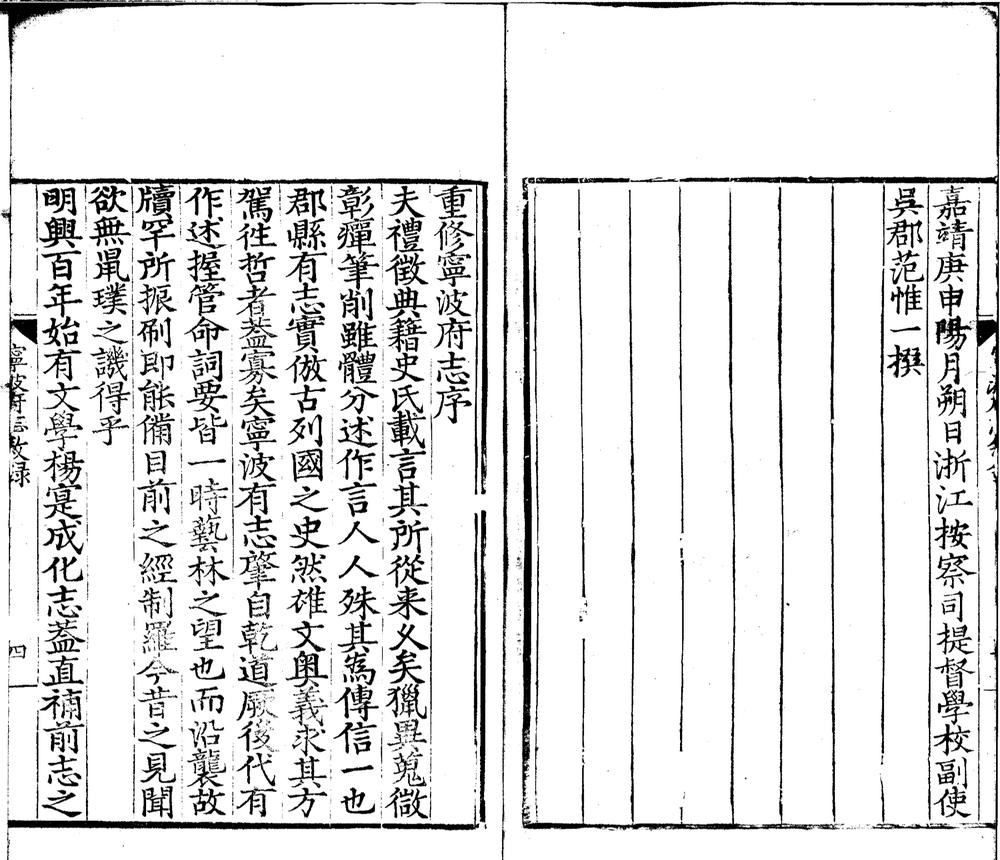 嘉靖庚申陽月朔日浙江按察司提督學校副使
吳郡范惟一撰
重修寧波府志序
夫禮徵典籍史氏載言其所從来乆矣獵異蒐微
彰癉筆削雖體分述作言人人殊其為傳信一也
郡縣有志實倣古列國之史然雄文奥義求其方
駕徃哲者葢寡矣寧波有志肇自乾道厥後代有
作述握管命詞要皆一時藝林之望也而沿襲故
牘罕所振刷即能備目前之經制羅今昔之見聞
欲無鼠璞之譏得乎
明興百年始有文學楊寔成化志葢直補前志之
寧波府志敘錄
四